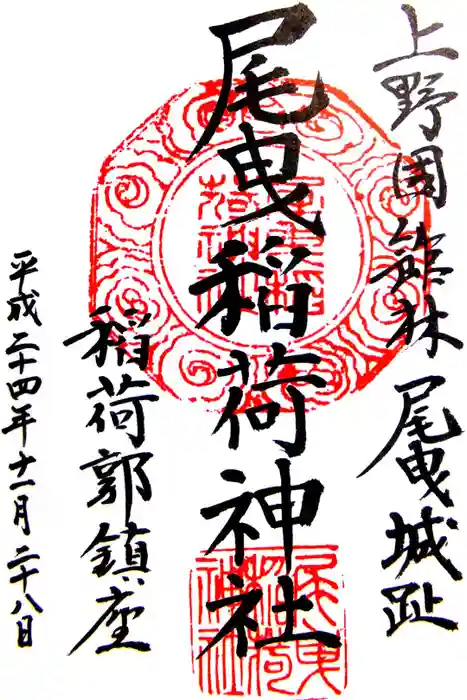 上野國 館林 尾曳城趾
尾曳稲荷神社
稲荷郭鎮座
平成二十四年十一月二十八日
尾曳
稲荷
神社